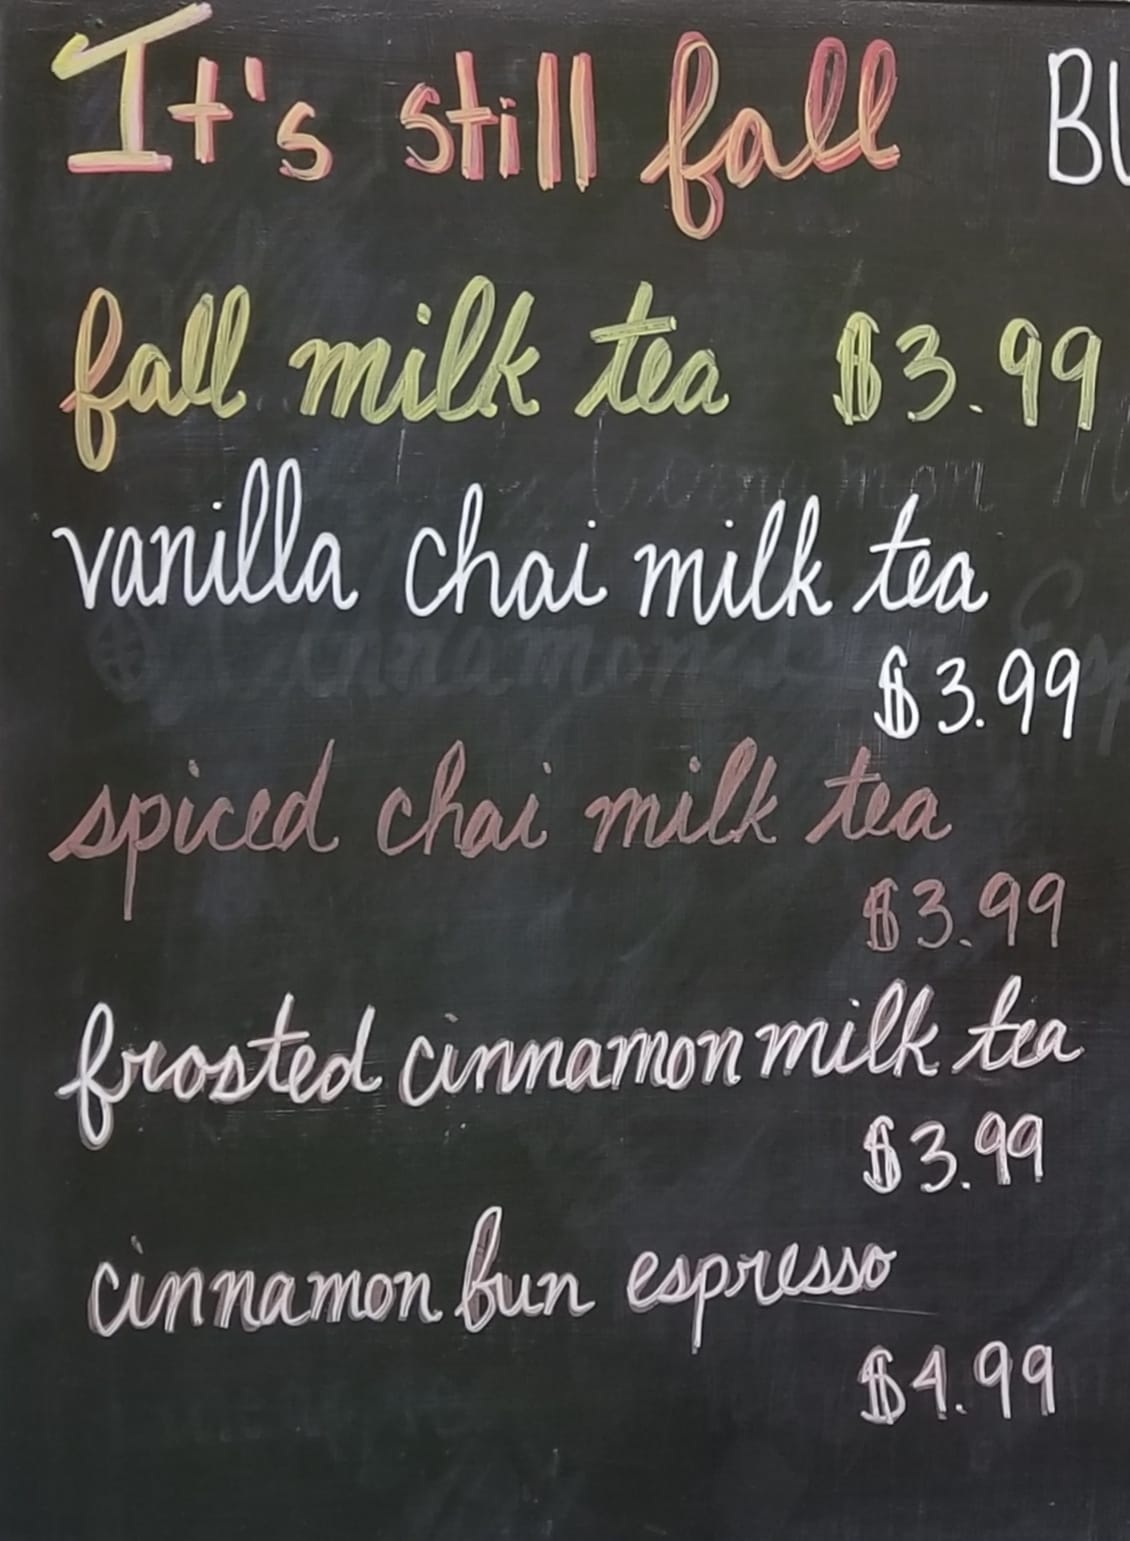 It's still fall BU
fall milk tea $3.99
vanilla chai milk tea
$3.99
spiced chai milk tea
$3.99
frosted cinnamon milk tea
$3.99
cinnamon bun espresso
$4.99